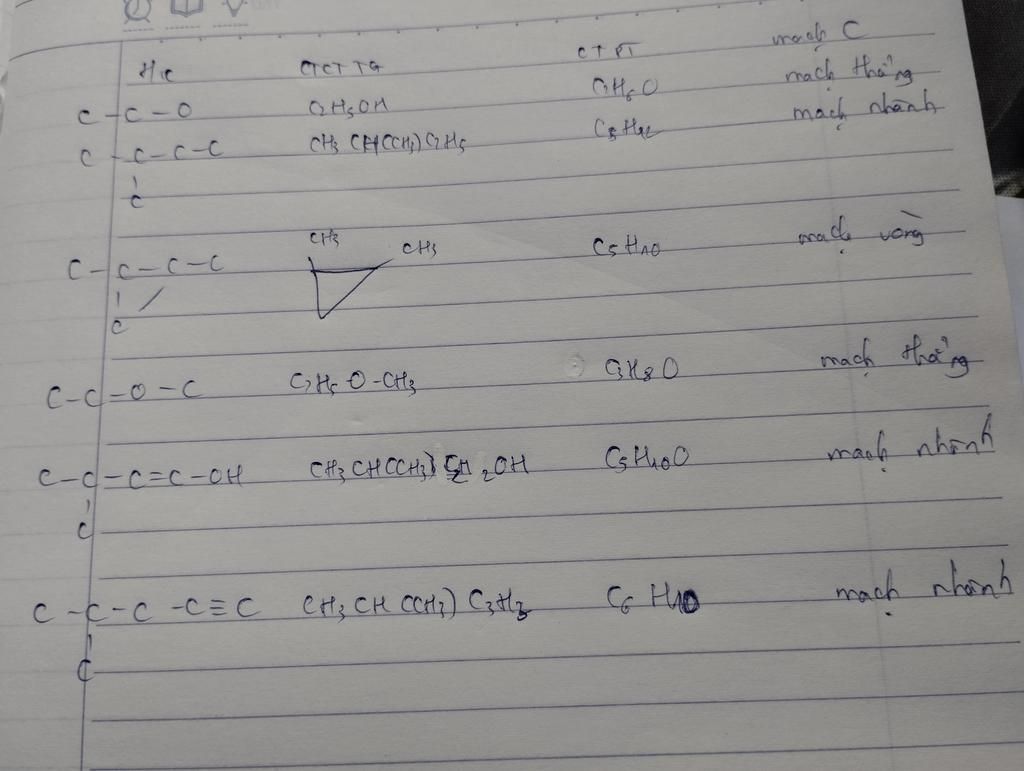 H/c CTCT TG CTPT mạch C
C - C - O C2H5OH C2H6O mạch thẳng
C - C - C - C CH3 CH(CH3) C2H5 C5H12 mạch nhánh
C
CH3
C - C - C - C CH3 C5H10 mạch vòng
C
C - C - O - C C2H5 O - CH3 C3H8O mạch thẳng
C - C - C = C - OH CH3 CH(CH3) C2H2OH C5H10O mạch nhánh
C
C - C - C - C ≡ C CH3 CH (CH3) C3H3 C6H10 mạch nhánh
C